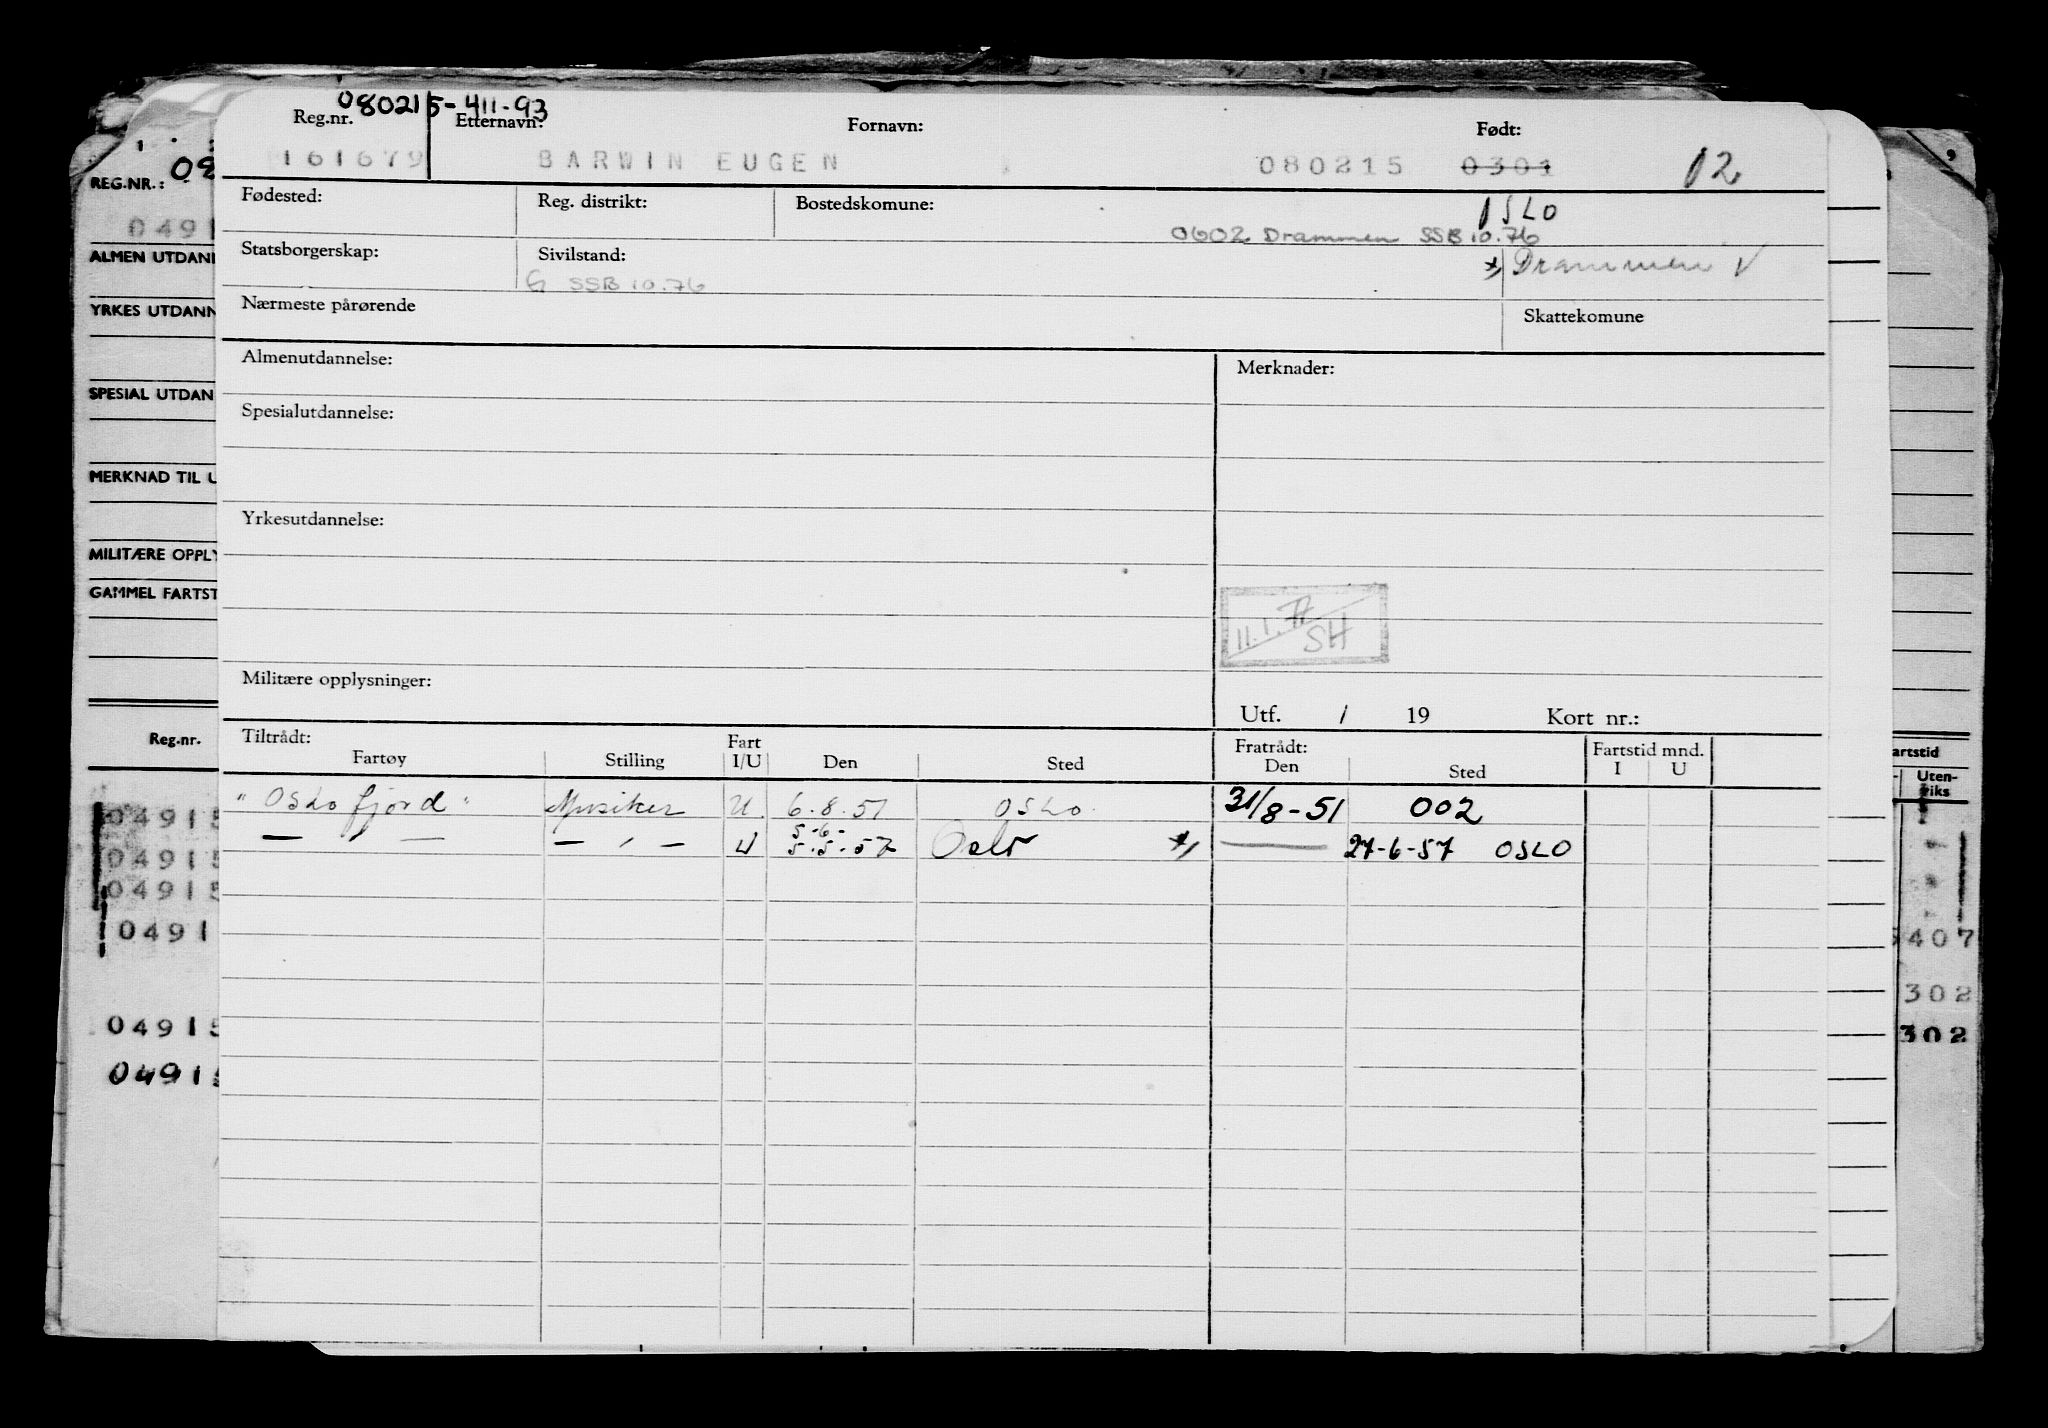 080215-411-93
Reg.nr. Etternavn: Fornavn: Født:
161679 BARWIN EUGEN 080215 0301 12
Fødested: Reg. distrikt: Bostedskomune: OSLO
0602 Drammen SSB 10.76
Statsborgerskap: Sivilstand: x) Drammen V
G SSB 10.76
Nærmeste pårørende Skattekomune
Almenutdannelse: Merknader:
Spesialutdannelse:
Yrkesutdannelse:
11.1.77 SH
Militære opplysninger:
Utf. / 19 Kort nr.:
Tiltrådt: Fart Fratrådt: Fartstid mnd.
Fartøy Stilling I/U Den Sted Den Sted I U
"Oslofjord" Musiker U 6.8.51 OSLO 31/8-51 002
— " — — " — U 5-6- Oslo x) 27-6-57 OSLO
5.5.57
REG.NR.: 08
0491
ALMEN UTDAN
YRKES UTDANN
SPESIAL UTDAN
MERKNAD TIL U
MILITÆRE OPPLY
GAMMEL FARTST
Reg.nr.
04915
04915
04915
0491
04915
04915
artstid
Uten-
riks
407
302
302